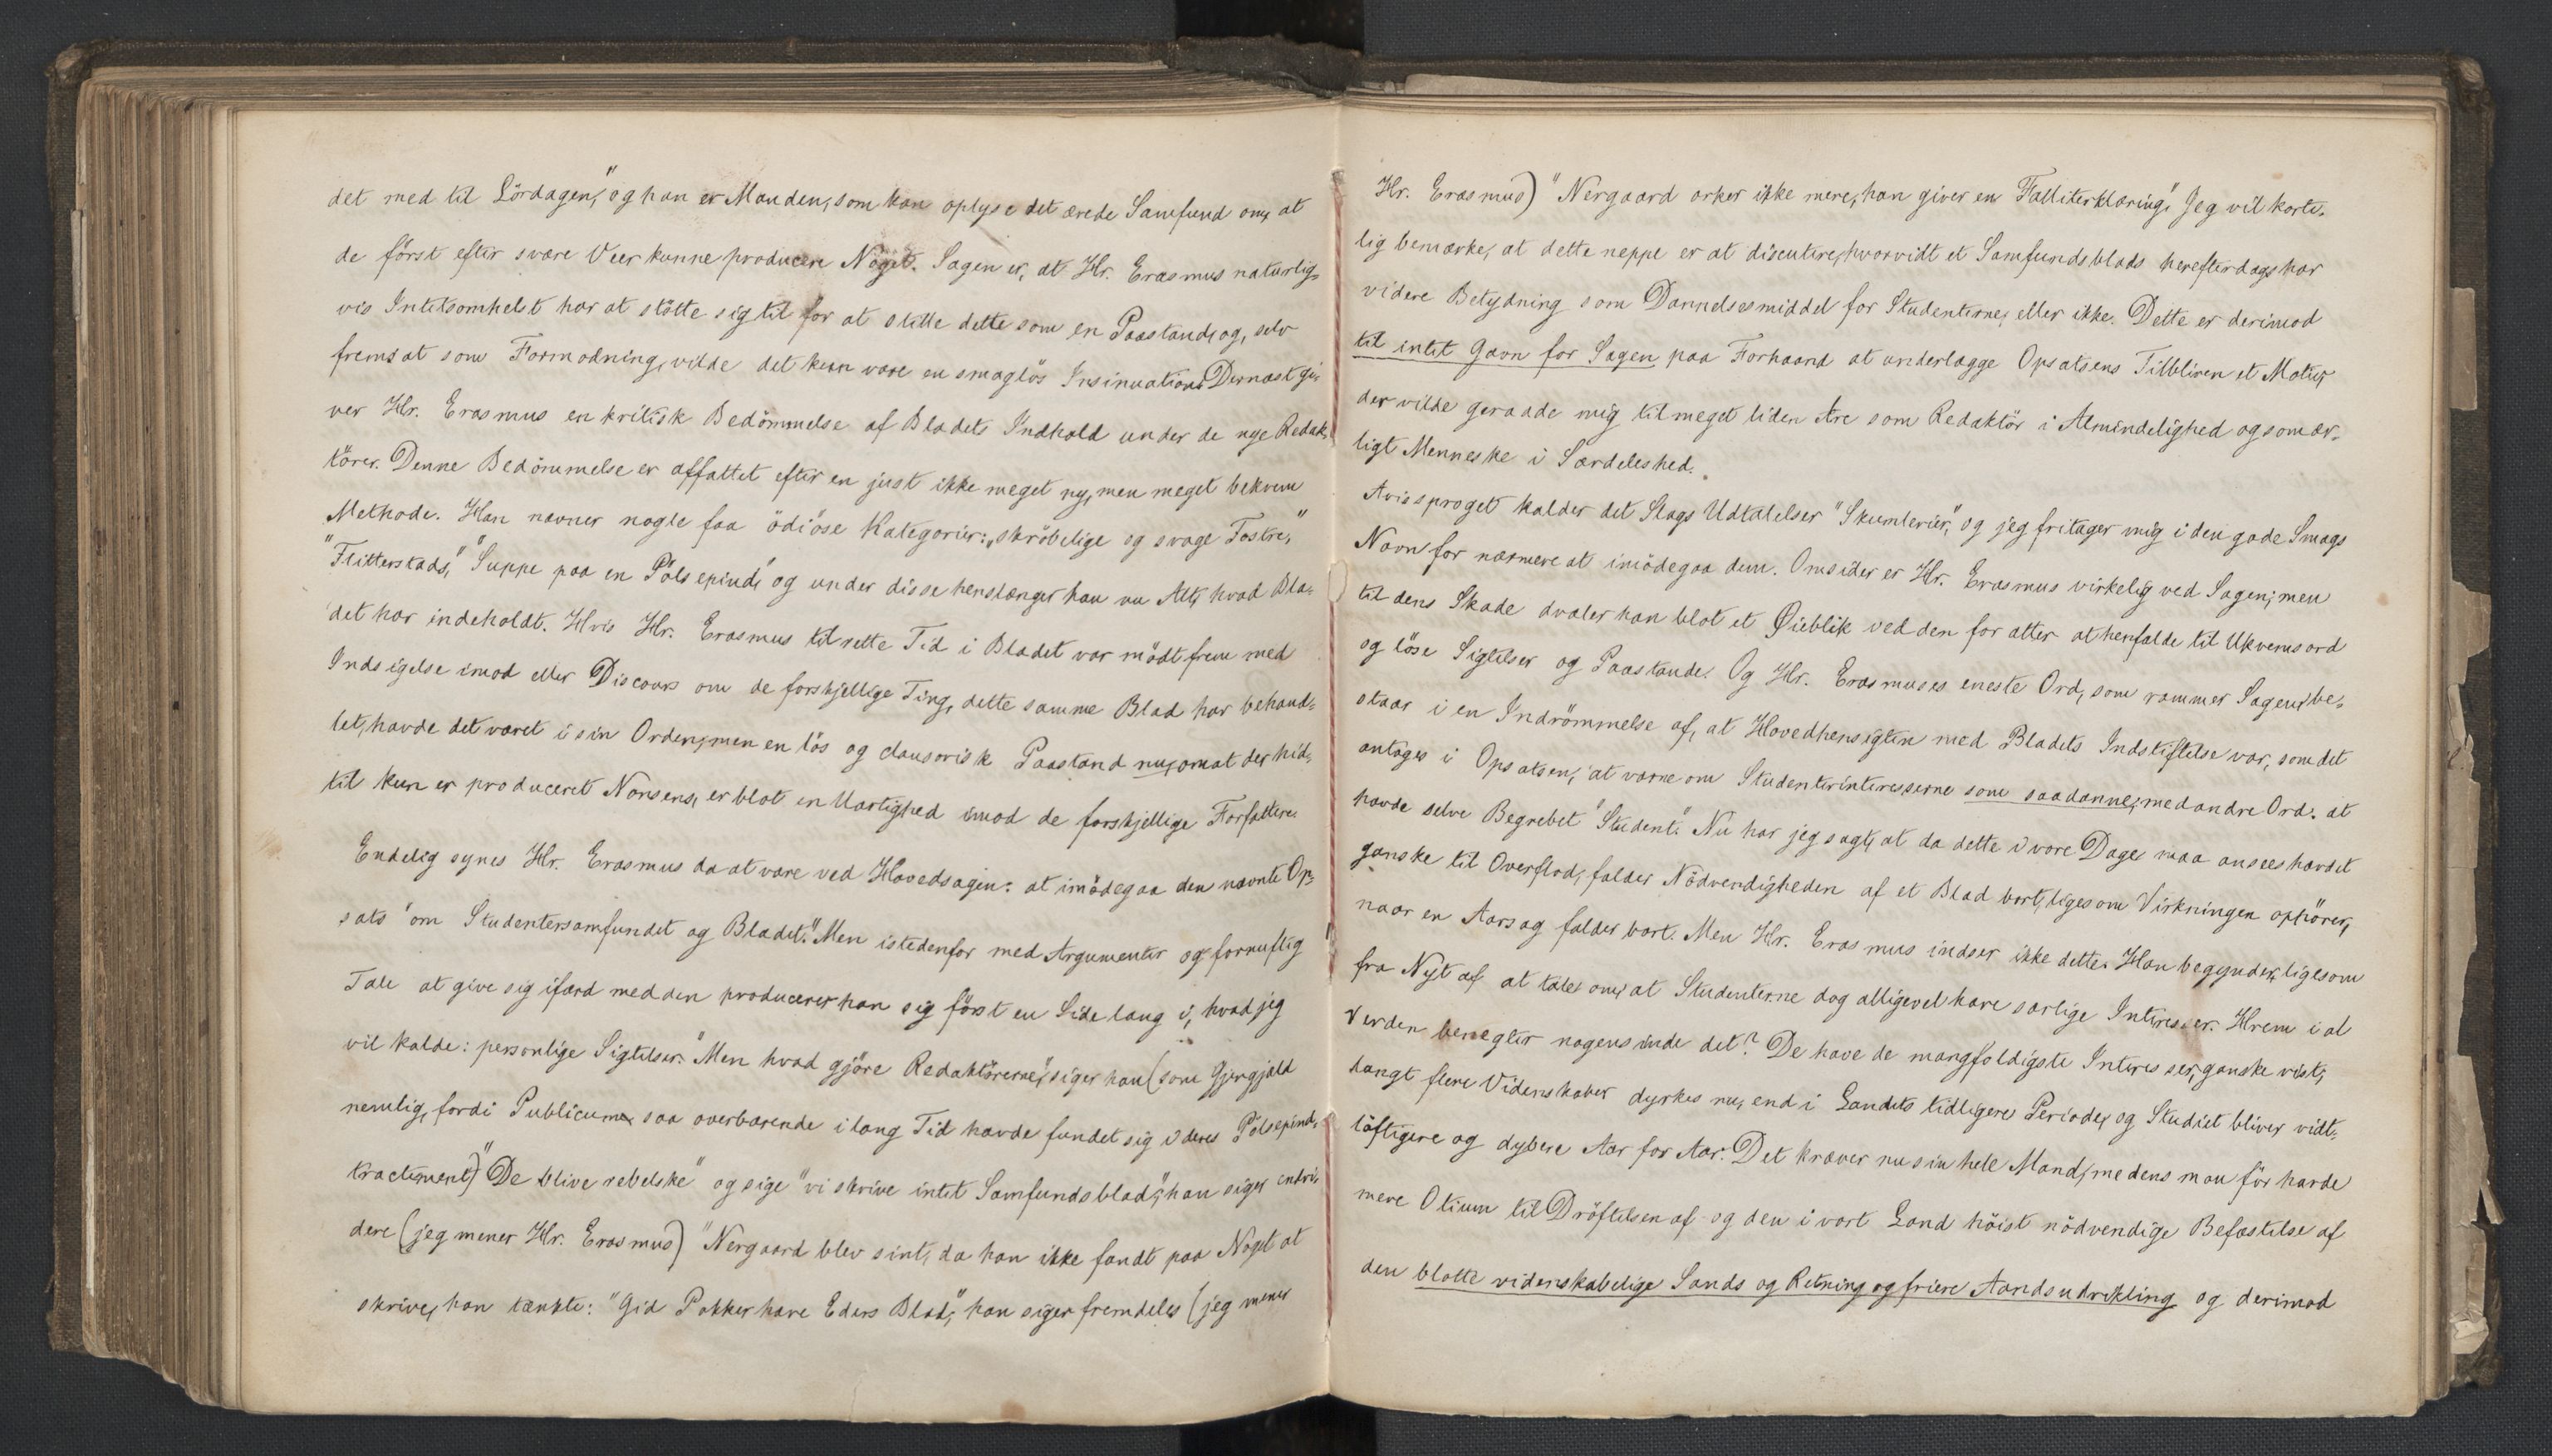 det med til Lördagen," og han er Manden, som kan oplyse det ærede Samfund om, at
de först efter svære Veer kunne producere Noget. Sagen er, at Hr. Erasmus naturlig-
vis Intetsomhelst har at stötte sig til for at stille dette som en Paastand, og, selv
fremsat som Formodning, vilde det kun være en smaglös Insinuation. Dernæst gi-
ver Hr. Erasmus en kritisk Bedömmelse af Bladets Indhold under de nye Redak-
törer. Denne Bedömmelse er affattet efter en just ikke meget ny, men meget bekvem
Methode. Han nævner nogle faa ödiöse Kategorier: "skröbelige og svage Fostre,"
"Flitterstads," "Suppe paa en Pölsepind," og under disse henslænger han nu Alt, hvad Bla-
det har indeholdt. Hvis Hr. Erasmus til rette Tid i Bladet var mödt frem med
Indsigelse imod eller Discours om de forskjellige Ting, dette samme Blad har behand-
let, havde det været i sin Orden; men en lös og clausorisk Paastand nu, om at der hid-
til kun er produceret Nonsens, er blot en Uartighed imod de forskjellige Forfattere.
Endelig synes Hr. Erasmus da at være ved Hovedsagen: at imödegaa den nævnte Op-
sats "om Studentersamfundet og Bladet." Men istedenfor med Argumenter og fornuftig
Tale at give sig ifærd med den producerer han sig först en Side lang i, hvad jeg
vil kalde: personlige Sigtelser. "Men hvad gjöre Redaktörerne," siger han (som Gjengjæld
nemlig, fordi Publicum saa overbærende i lang Tid havde fundet sig i deres Pölsepind-
tractement) "De blive rebelske" og sige "vi skrive intet Samfundsblad"; han siger endvi-
dere (jeg mener Hr. Erasmus) "Nergaard blev sint, da han ikke fandt paa Noget at
skrive, han tænkte: "Gid Pokker have Eders Blad," han siger fremdeles (jeg mener
Hr. Erasmus) "Nergaard orker ikke mere, han giver en Falliterklæring." Jeg vil korte-
lig bemærke, at dette neppe er at discutere, hvorvidt et Samfundsblads herefterdags har
videre Betydning som Dannelsesmiddel for Studenterne, eller ikke. Dette er derimod
til intet Gavn for Sagen paa Forhaand at underlægge Opsatsens Tilbliven et Motiv,
der vilde geraade mig til meget liden Ære som Redaktör i Almindelighed og som ær-
ligt Menneske i Særdeleshed.
Avissproget kalder det Slags Udtalelser "Skumlerier," og jeg fritager mig i den gode Smags
Navn for nærmere at imödegaa dem. Omsider er Hr. Erasmus virkelig ved Sagen; men
til dens Skade dvæler han blot et Øieblik ved den for atter at henfalde til Ukvemsord
og löse Sigtelser og Paastande. Og Hr. Erasmuses eneste Ord, som rammer Sagen, be-
staar i en Indrömmelse af, at Hovedhensigten med Bladets Indstiftelse var, som det
antages i Opsatsen, at værne om Studenterinteresserne som saadanne, med andre Ord: at
hævde selve Begrebet "Student." Nu har jeg sagt, at da dette i vore Dage maa ansees hævdet
ganske til Overflod, falder Nödvendigheden af et Blad bort, ligesom Virkningen ophörer,
naar en Aarsag falder bort. Men Hr. Erasmus indser ikke dette. Han begynder, ligesom
fra Nyt af at tale om, at Studenterne dog alligevel have særlige Interesser. Hvem i al
Verden benegter nogensinde det? De have de mangfoldigste Interesser, ganske vist,
langt flere Videnskaber dyrkes nu, end i Landets tidligere Periode, og Studiet bliver vidt-
löftigere og dybere Aar for Aar. Det kræver nu sin hele Mand, medens man för havde
mere Otium til Dröftelsen af og den i vort Land höist nödvendige Befæstelse af
den blotte videnskabelige Sands og Retning og friere Aandsudvikling og derimod